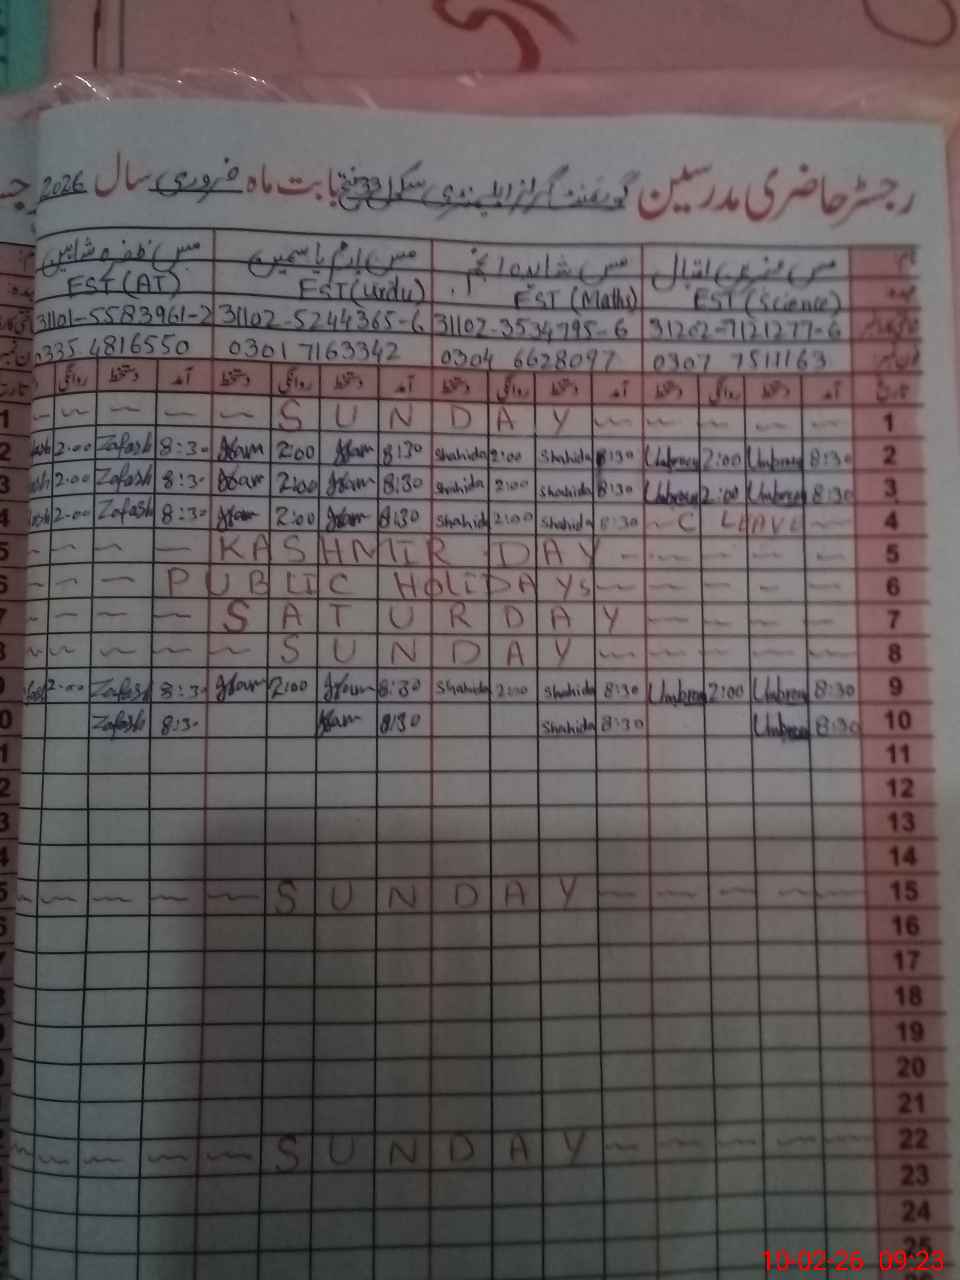 رجسٹر حاضری مدرسین گورنمنٹ گرلز ایلیمنٹری سکول 33 بابت ماہ فروری سال 2026
مس عنبرین اقبال مس شاہدہ مس ارم یاسمین مس ظفرہ شاہین
عہدہ EST (Science) EST (Maths) EST (Urdu) EST (AT)
31202-7121277-6 31102-3534795-6 31102-5244365-6 31101-5583961-2
0307 7511163 0304 6628097 0301 7163342 0335 4816550
تاریخ آمد دستخط روانگی دستخط آمد دستخط روانگی دستخط آمد دستخط روانگی دستخط آمد دستخط روانگی
1 SUNDAY 1
2 2:00 Zafash 8:30 2:00 8:30 Shahida 2:00 Shahida 8:30 Umbreen 2:00 Umbreen 8:30 2
3 2:00 Zafash 8:30 2:00 8:30 Shahida 2:00 Shahida 8:30 Umbreen 2:00 Umbreen 8:30 3
4 2:00 Zafash 8:30 2:00 8:30 Shahid 2:00 Shahida 8:30 C LEAVE 4
5 KASHMIR DAY 5
6 PUBLIC HOLIDAYS 6
7 SATURDAY 7
8 SUNDAY 8
9 2:00 Zafash 8:30 2:00 8:30 Shahida 2:00 Shahida 8:30 Umbreen 2:00 Umbreen 8:30 9
0 Zafash 8:30 8:30 Shahida 8:30 Umbreen 8:30 10
1 11
2 12
3 13
4 14
5 SUNDAY 15
6 16
7 17
8 18
9 19
20
21
2 SUNDAY 22
23
24
25
10-02-26 09:23